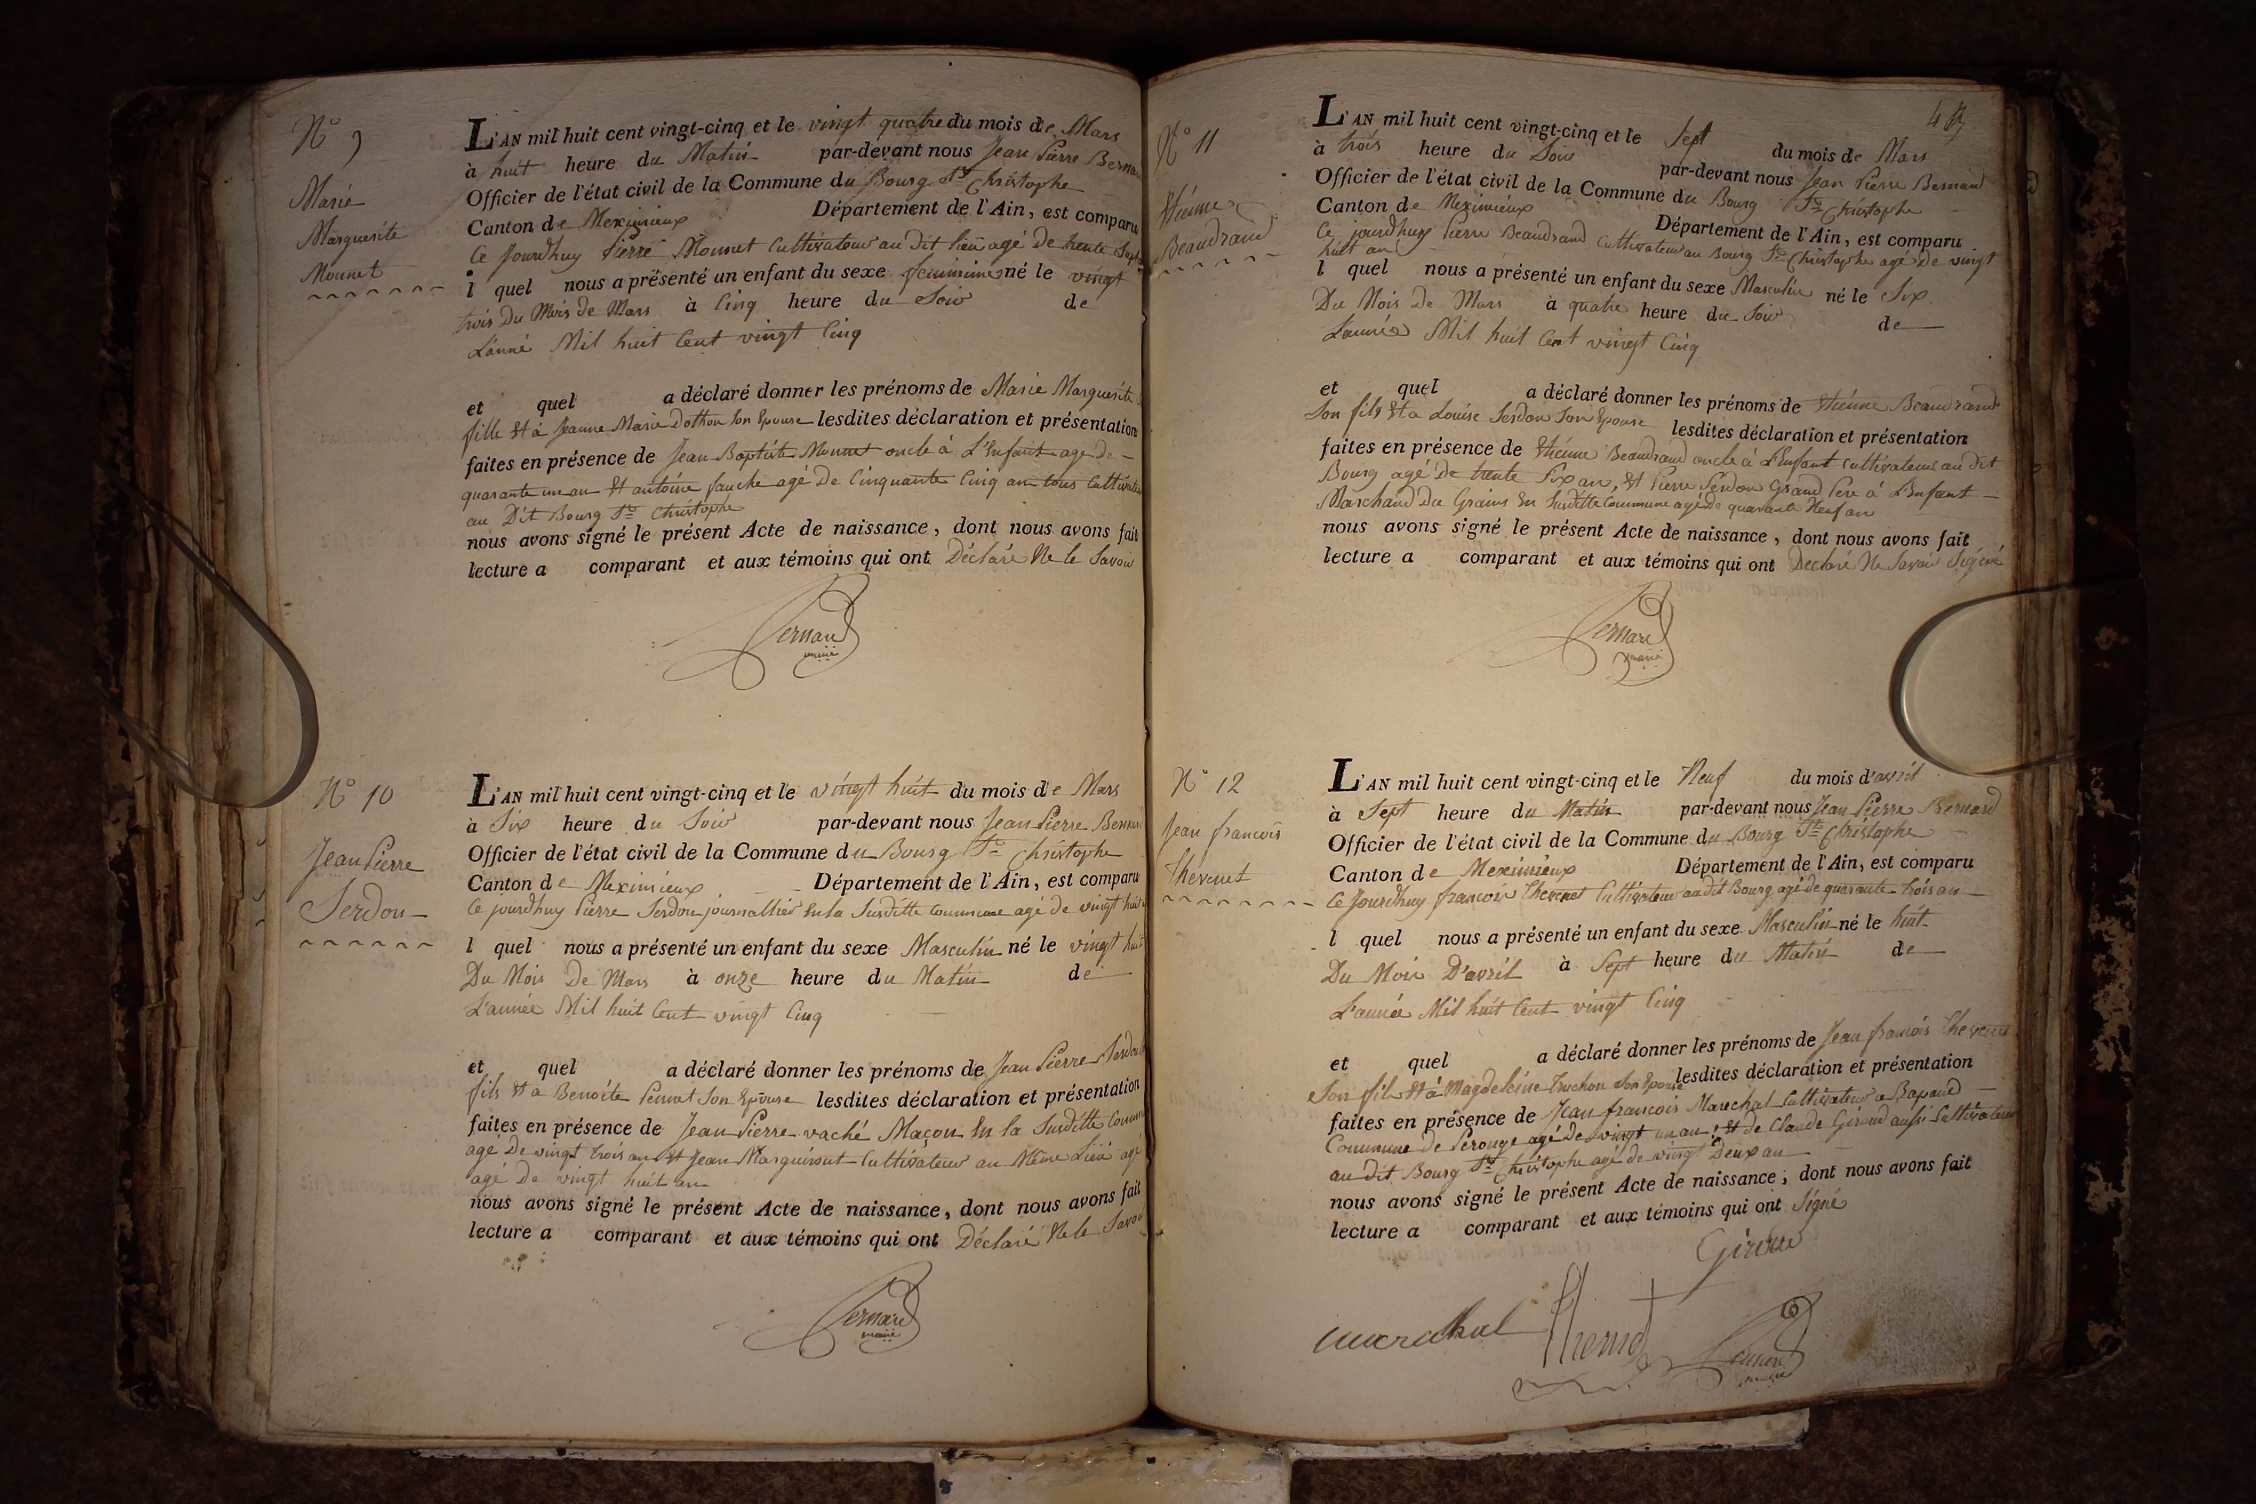 N° 9
Marie
Marguerite
Monnet
L'AN mil huit cent vingt-cinq et le vingt quatre du mois de Mars
à huit heure du Matin par-devant nous Jean Pierre Bernard
Officier de l'état civil de la Commune du Bourg St Christophe
Canton de Meximieux Département de l'Ain, est comparu
Ce jourdhuy Pierre Monnet Cultivateur au dit lieu agé de trente Sept
l quel nous a présenté un enfant du sexe feminine né le vingt
trois Du Mois de Mars à Cinq heure du Soir de
L'anné Mil huit Cent vingt Cinq
et quel a déclaré donner les prénoms de Marie Marguerite
fille Et à Jeanne Marie Dothon Son Epouse lesdites déclaration et présentation
faites en présence de Jean Baptiste Monnet oncle à L'Enfant agé de
quarante un an Et antoine fauche agé De Cinquante Cinq an tous Cultivateur
au Dit Bourg St Christophe
nous avons signé le présent Acte de naissance, dont nous avons fait
lecture a comparant et aux témoins qui ont Déclaré Ne le Savoir
Bernard
maire
N° 10
Jean Pierre
Serdon
L'AN mil huit cent vingt-cinq et le vingt huit du mois de Mars
à Six heure du Soir par-devant nous Jean Pierre Bernard
Officier de l'état civil de la Commune du Bourg St Christophe
Canton de Meximieux Département de l'Ain, est comparu
Ce jourdhuy Pierre Serdon journallier En la Susditte Commune agé de vingt huit
l quel nous a présenté un enfant du sexe Masculin né le vingt huit
Du Mois De Mars à onze heure du Matin de
L'année Mil huit Cent vingt Cinq
et quel a déclaré donner les prénoms de Jean Pierre Serdon
fils Et a Benoite Pennet Son Epouse lesdites déclaration et présentation
faites en présence de Jean Pierre vaché Maçon En la Susditte Commune
agé De vingt trois an Et Jean Marguinout Cultivateur au Même Lieu agé
agé De vingt huit an
nous avons signé le présent Acte de naissance, dont nous avons fait
lecture a comparant et aux témoins qui ont Déclaré Ne le Savoir
Bernard
maire
N° 11
Etienne
Beaudrand
L'AN mil huit cent vingt-cinq et le Sept du mois de Mars
à trois heure du Soir par-devant nous Jean Pierre Bernard
Officier de l'état civil de la Commune du Bourg St Christophe
Canton de Meximieux Département de l'Ain, est comparu
Ce jourdhuy Pierre Beaudrand Cultivateur au Bourg St Christophe agé De vingt
huit an
l quel nous a présenté un enfant du sexe Masculin né le Six
Du Mois De Mars à quatre heure du Soir de
L'année Mil huit Cent vingt Cinq
et quel a déclaré donner les prénoms de Etienne Beaudrand
Son fils Et a Louise Serdon Son Epouse lesdites déclaration et présentation
faites en présence de Etienne Beaudrand oncle à L'Enfant Cultivateur au dit
Bourg agé De trente Six an, Et Pierre Serdon Grand Pere à L'Enfant
Marchand Du Grains En Susditte Commune agé De quarante Neuf an
nous avons signé le présent Acte de naissance, dont nous avons fait
lecture a comparant et aux témoins qui ont Déclaré Ne Savoir Signé
Bernard
maire
N° 12
Jean francois
Thevenet
L'AN mil huit cent vingt-cinq et le Neuf du mois d'avril
à Sept heure du Matin par-devant nous Jean Pierre Bernard
Officier de l'état civil de la Commune du Bourg St Christophe
Canton de Meximieux Département de l'Ain, est comparu
Ce Jourdhuy francois Thevenet Cultivateur au dit Bourg agé de quarante trois an
l quel nous a présenté un enfant du sexe Masculin né le huit
Du Mois D'avril à Sept heure du Matin de
L'année Mil huit Cent vingt Cinq
et quel a déclaré donner les prénoms de Jean francois Thevenet
Son fils Et à Magdeleine Truchon Son Epouse lesdites déclaration et présentation
faites en présence de Jean francois Marechal Cultivateur a Rapand
Commune de Perouge agé De vingt un an, Et de Claude Giroud aussi Cultivateur
au dit Bourg St Christophe agé de vingt Deux an
nous avons signé le présent Acte de naissance, dont nous avons fait
lecture a comparant et aux témoins qui ont Signé
marechal
Bernard
maire